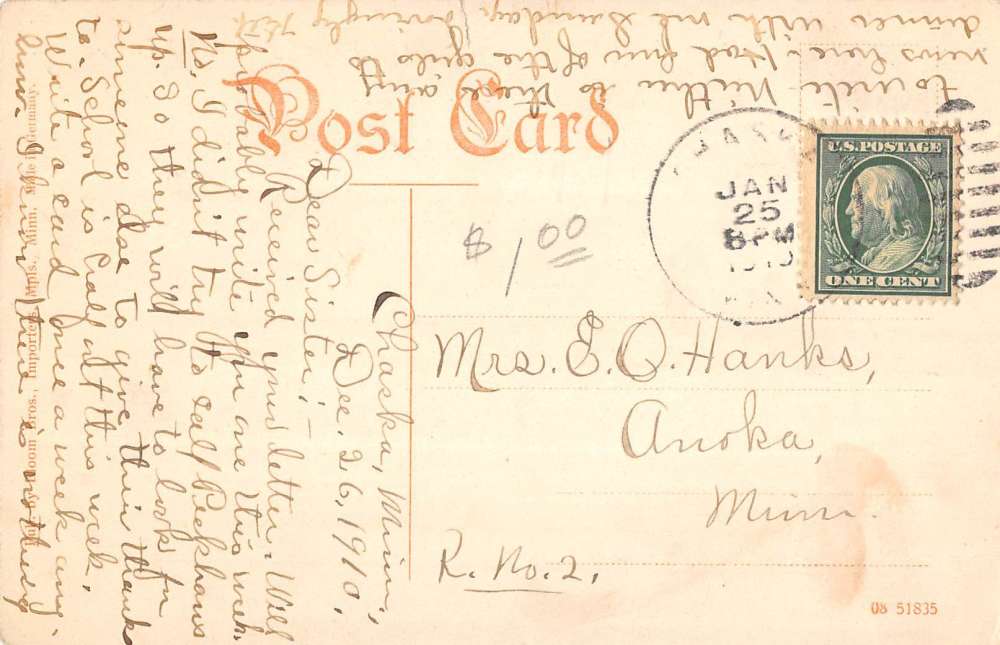 Post Card
JAN
25
8 PM
1910
U.S. POSTAGE
ONE CENT
$1.00
Mrs. E. O. Hanks,
Anoka,
Minn.
R. No. 2.
08 51835
Chaska, Minn.,
Dec. 26, 1910.
Dear Sister;
Received your letter. Will
probably write you one this week.
Ns. I didn't try to call Peckhans
up. So they will have to look for
someone else to give their thanks
to. School is call off this week.
Write a card once a week any-
how. I know there is nothing
to write. Neither is there any
news here. Had four of the girls to
dinner with me Sunday. Lovingly
Bloom Bros., Importers, Mpls., Minn. Made in Germany.